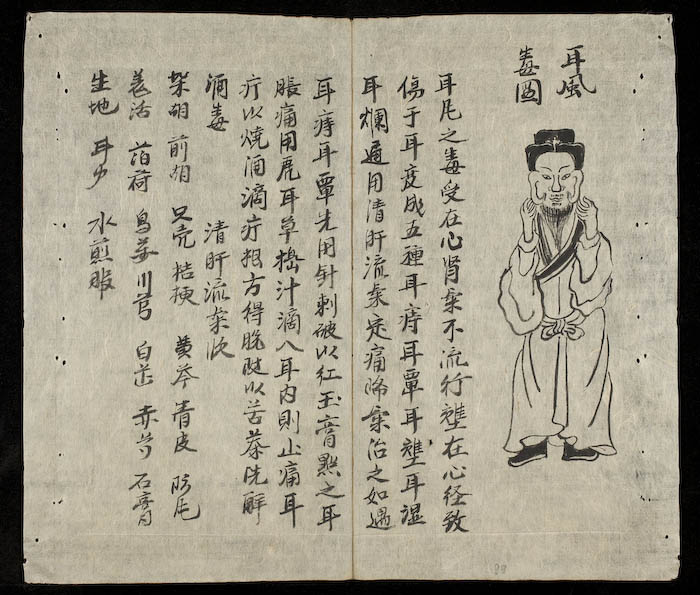 耳風
毒圖
耳風之毒受在心肾氣不流行壅在心经致
傷于耳变成五種耳痔耳覃耳壅耳濕
耳爛通用清肝流氣定痛降氣治之如遇
耳痔耳覃先用針刺破以紅玉膏點之耳
脹痛用虎耳草搗汁滴入耳内則止痛耳
疔以燒酒滴疔根方得脫陡以苦蔘洗解
酒毒 清肝流氣飲
柴胡 前胡 只壳 桔梗 黃芩 青皮 防風
羗活 萡荷 烏薬 川芎 白芷 赤芍 石膏
生地 甘草 水煎服
88